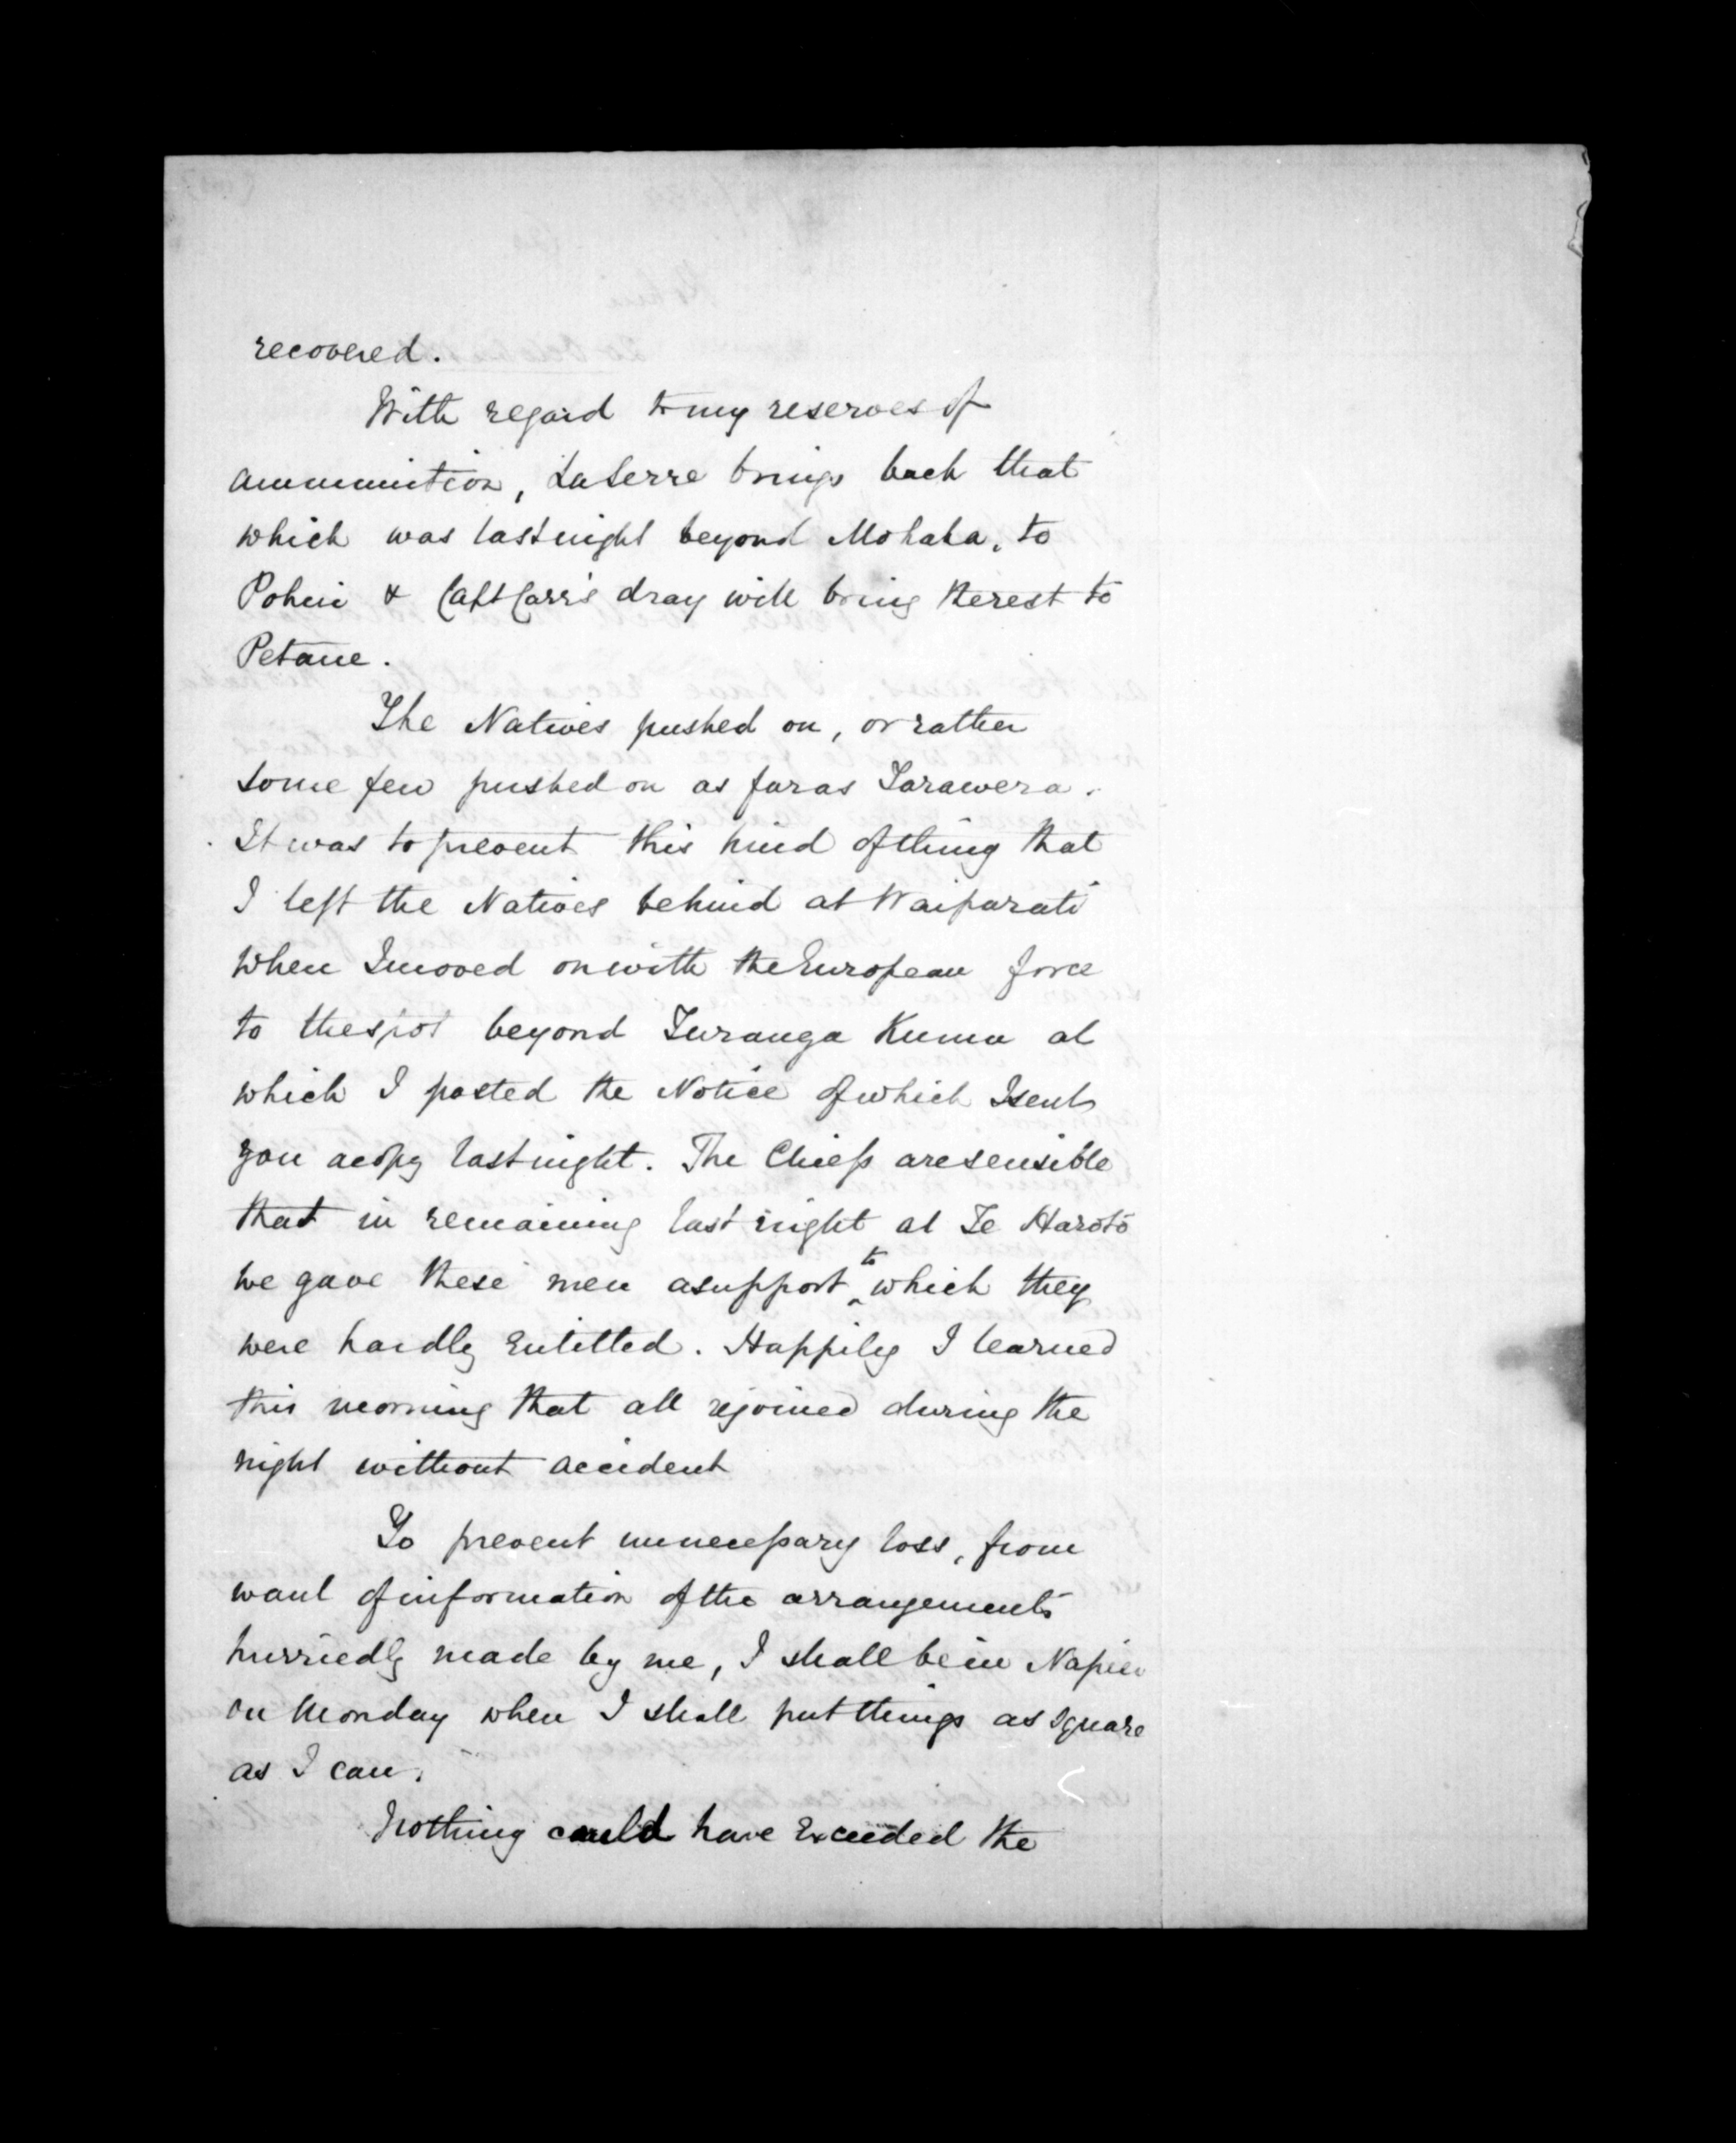 recovered.
With regard to my reserves of
ammunition, LaSerre brings back that
which was last night beyond Mohaka, to
Pohui & Capt Carr's dray will bring the rest to
Petane.
The Natives pushed on, or rather
some few pushed on as far as Tarawera.
It was to prevent this kind of thing that
I left the Natives behind at Waiparati
when I moved on with the European force
to the spot beyond Turanga Kumu at
which I posted the Notice of which I sent
you a copy last night. The Chiefs are sensible
that in remaining last night at Te Haroto
we gave these men a support to which they
were hardly entitled. Happily I learned
this morning that all rejoined during the
night without accident
To prevent unnecessary loss, from
want of information of the arrangements
hurriedly made by me, I shall be in Napier
on Monday when I shall put things as square
as I can.
Nothing could have exceeded the